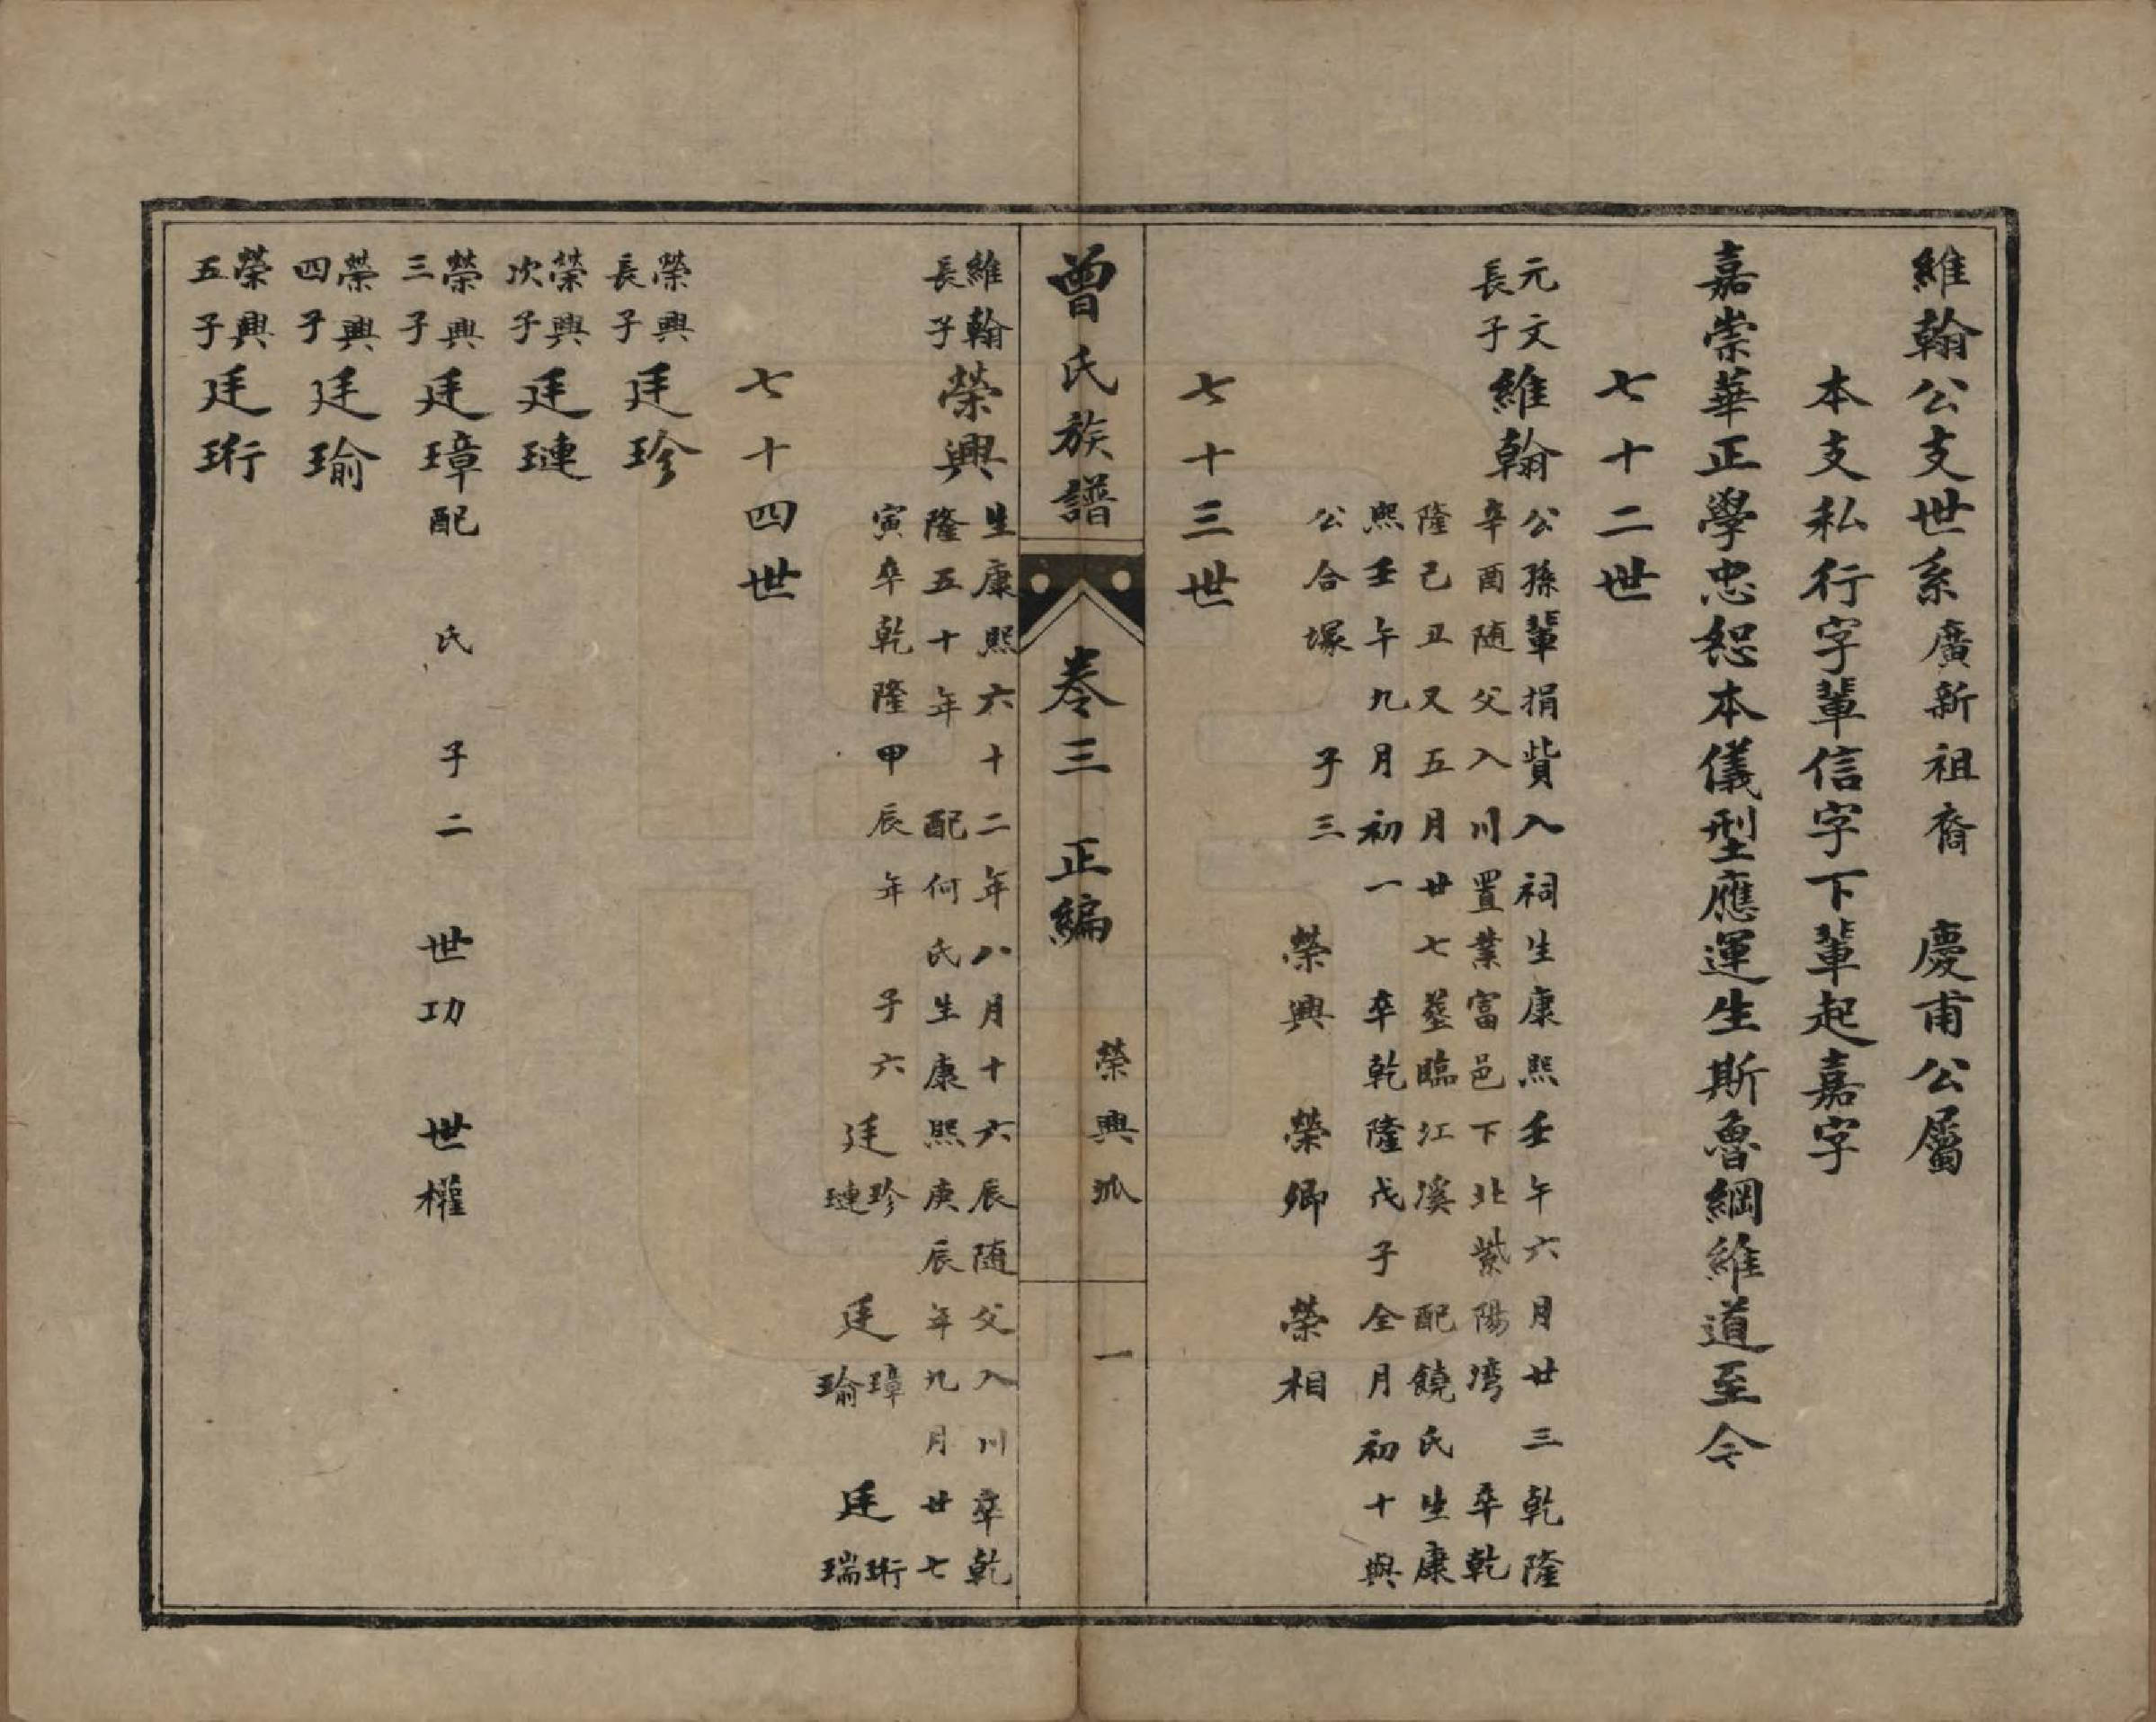 維翰公支世系廣新祖裔 慶甫公屬
本支私行字輩信字下輩起嘉字
嘉崇華正學忠恕本儀型應運生斯魯綱維道至今
七十二世
元文
長子
維翰
公孫輩捐貲入祠生康熙壬午六月廿三乾隆
辛酉随父入川置業富邑下北紫陽湾 卒乾
隆己丑又五月廿七塟臨江溪 配饒氏生康
熙壬午九月初一 卒乾隆戊子全月初十與
公合塚 子三 榮興 榮卿 榮相
七十三世
曾氏族譜 卷三 正編 榮興派 一
維翰
長子
榮興
生康熙六十二年八月十六辰随父入川卒乾
隆五十年 配何氏生康熙庚辰年九月廿七
寅卒乾隆甲辰年 子六 廷珍 廷璋 廷珩
璉 瑜 瑞
七十四世
榮興
長子
廷珍
榮興
次子
廷璉
榮興
三子
廷璋
配 氏 子二 世功 世權
榮興
四子
廷瑜
榮興
五子
廷珩